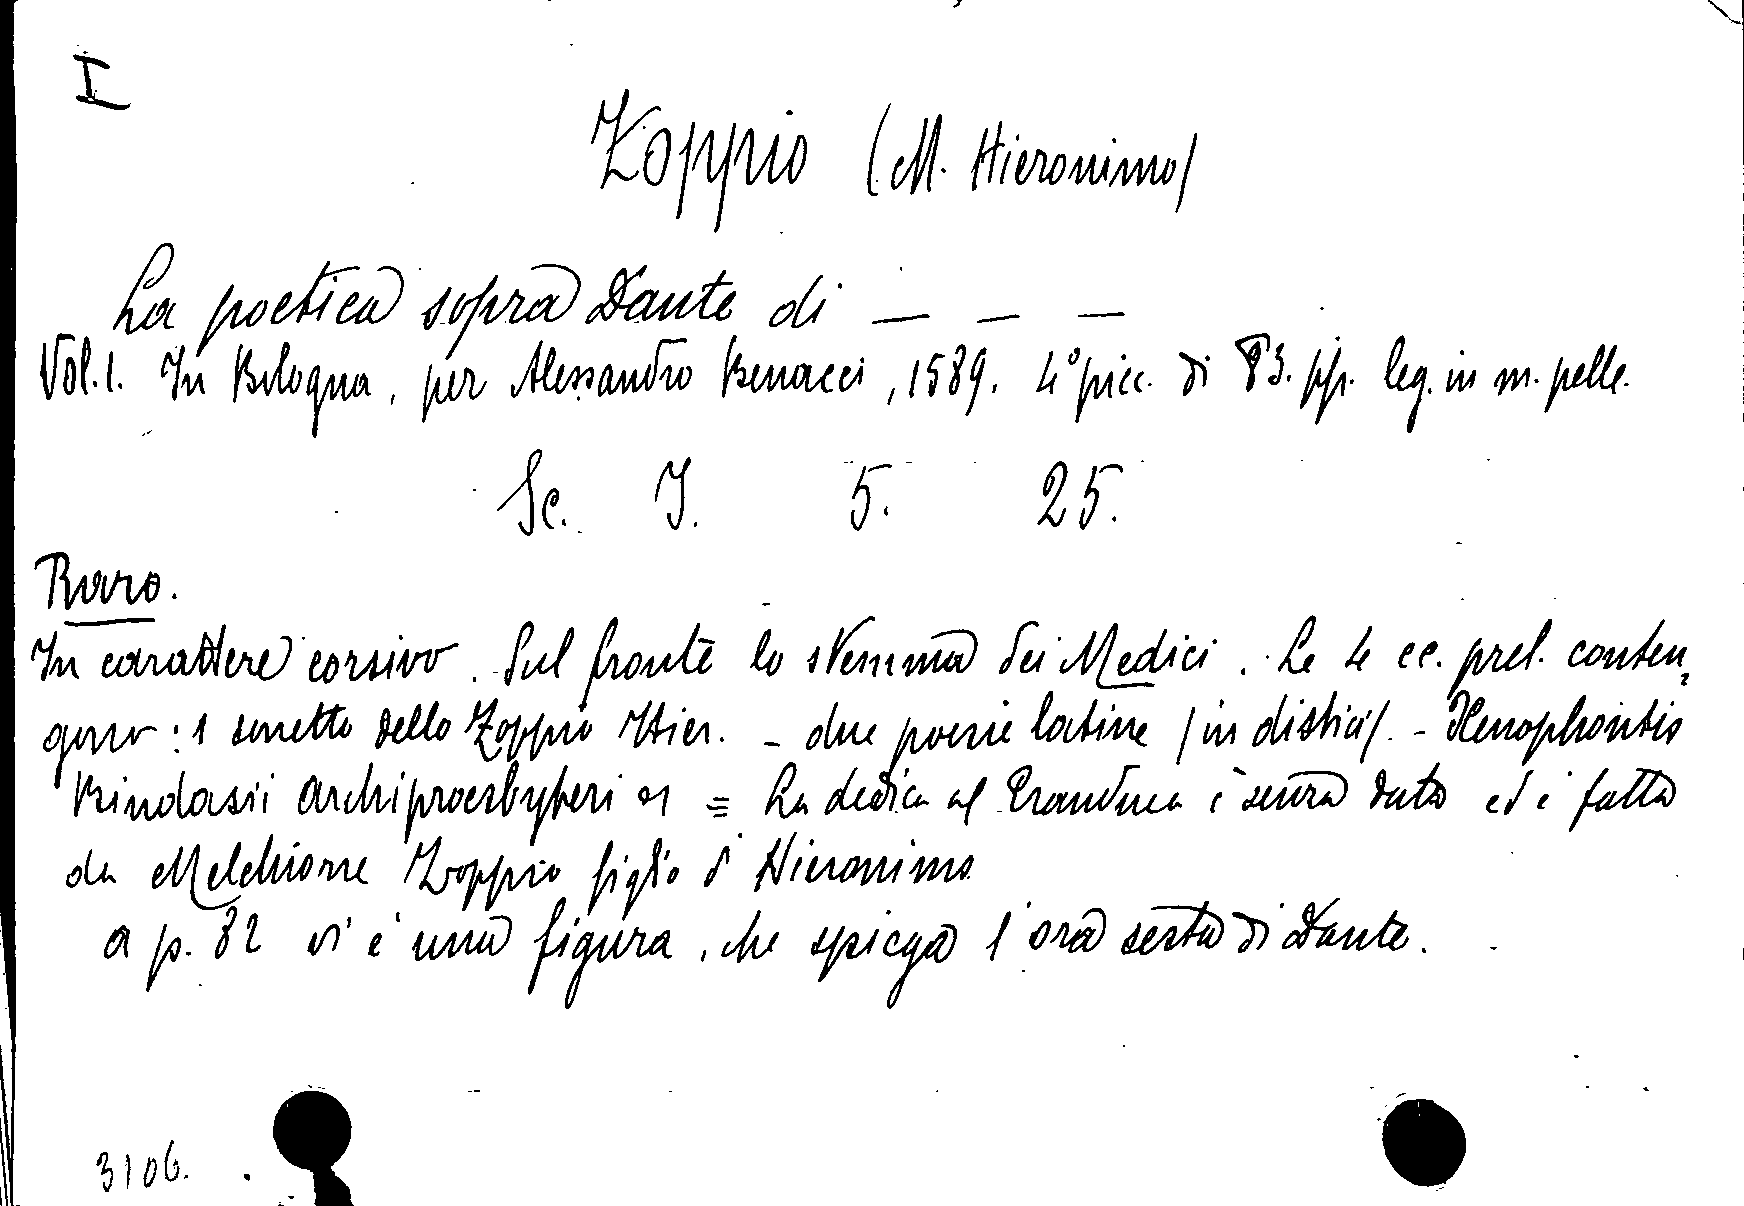 I
Zoppio (M. Hieronimo)
La poetica sopra Dante di — — —
Vol. 1. In Bologna, per Alessandro Benacci, 1589. 4° picc. di 83. pp. leg. in m. pelle.
Sc. I. 5. 25.
Raro.
In carattere corsivo. Sul fronte lo stemma dei Medici. Le 4 cc. prel. conten,
gono: 1 sonetto dello Zoppio Hier. - due poesie latine (in distici). - Xenophontis
Bindasii Archipraesbyteri = La dedica al Granduca è senza data ed è fatta
da Melchiorre Zoppio figlio d'Hieronimo
a p. 32 vi è una figura, che spiega l'ora sesta di Dante.
3106.